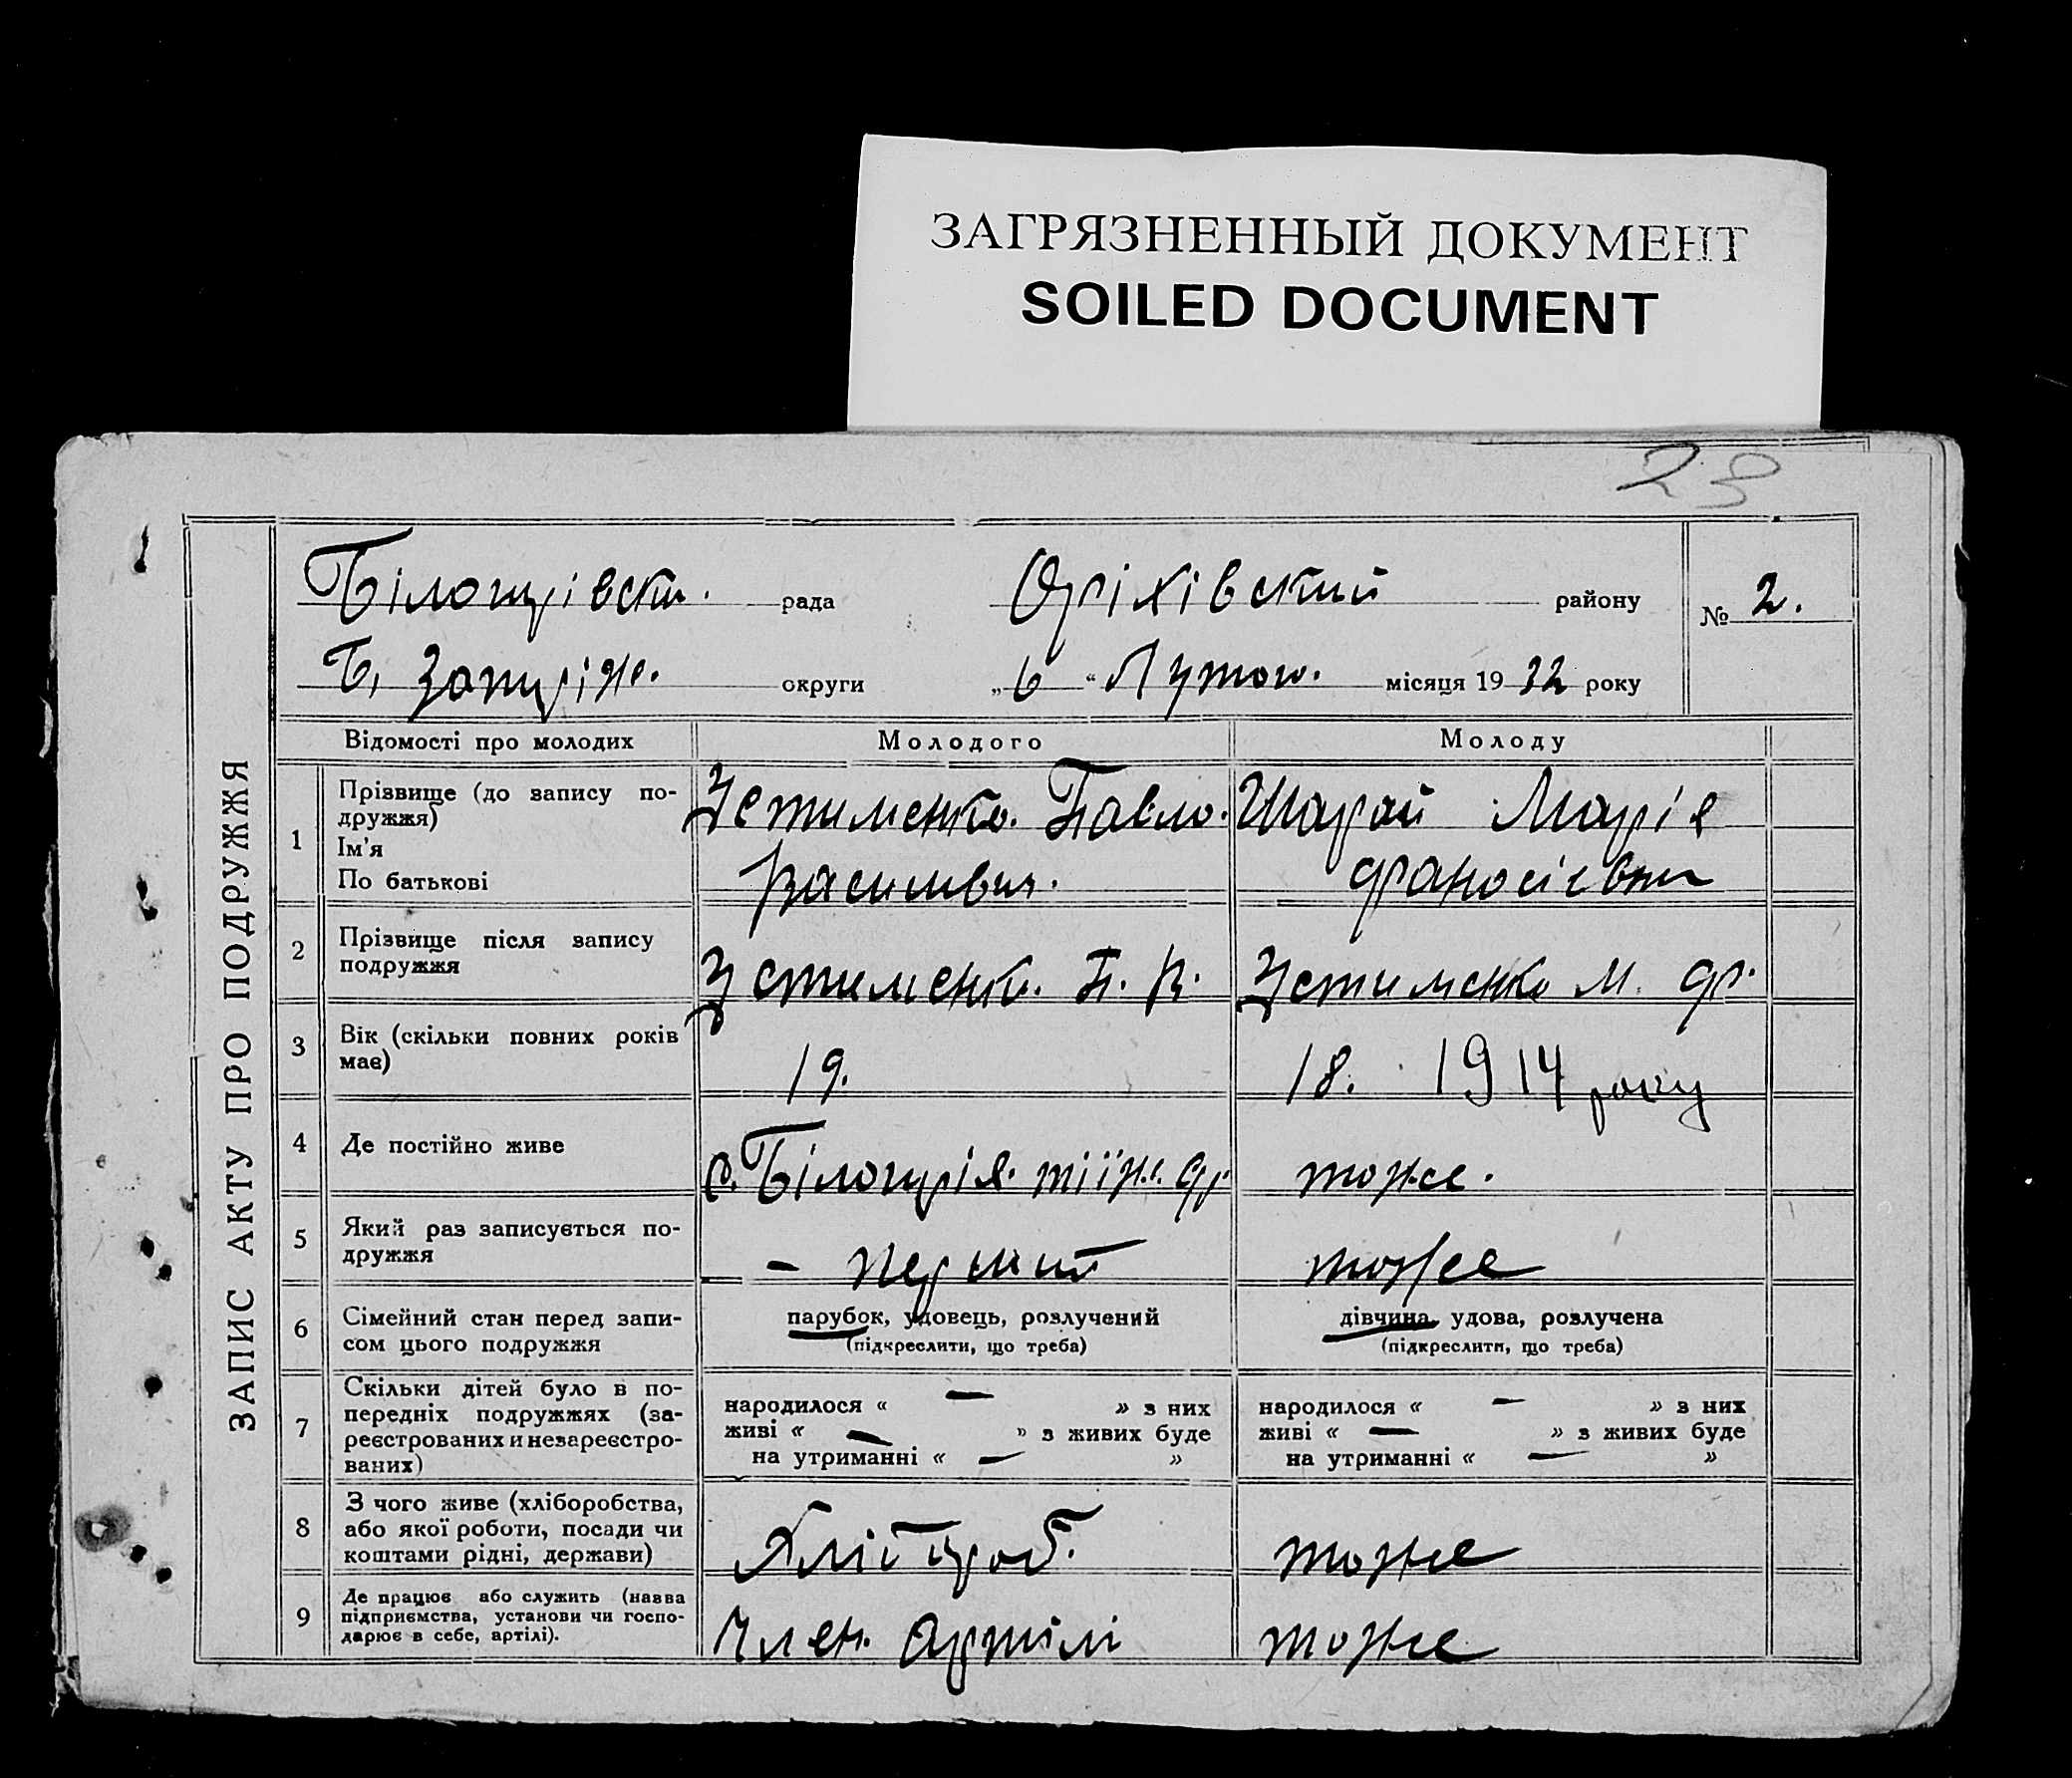 ЗАГРЯЗНЕННЫЙ ДОКУМЕНТ
SOILED DOCUMENT
23
ЗАПИС АКТУ ПРО ПОДРУЖЖЯ
Білогірівськ. рада Оріхівський району № 2.
Б. Запоріж. округи „6“ Лютого. місяця 1932 року
Відомості про молодих Молодого Молоду
1 Прізвище (до запису по-
дружжя)
Ім'я
По батькові
Устименко. Павло. Шарай Марія
Васильвич. Фаносієвни
2 Прізвище після запису
подружжя
Устименко. П. В. Устименко М. Ф.
3 Вік (скільки повних років
має)
19. 18. 1914 року
4 Де постійно живе
с. Білогіря. тоже.
5 Який раз записується по-
дружжя
– перший тоже
6 Сімейний стан перед запи-
сом цього подружжя
парубок, удовець, розлучений дівчина, удова, розлучена
(підкреслити, що треба) (підкреслити, що треба)
7 Скільки дітей було в по-
передніх подружжях (за-
реєстрованих и незареєстро-
ваних)
народилося « — » з них народилося « — » з них
живі « — » з живих буде живі « — » з живих буде
на утриманні « — » на утриманні « — »
8 З чого живе (хліборобства,
або якої роботи, посади чи
коштами рідні, держави)
Хлібороб. тоже
9 Де працює або служить (назва
підприємства, установи чи госпо-
дарює в себе, артілі).
Член. Артілі тоже